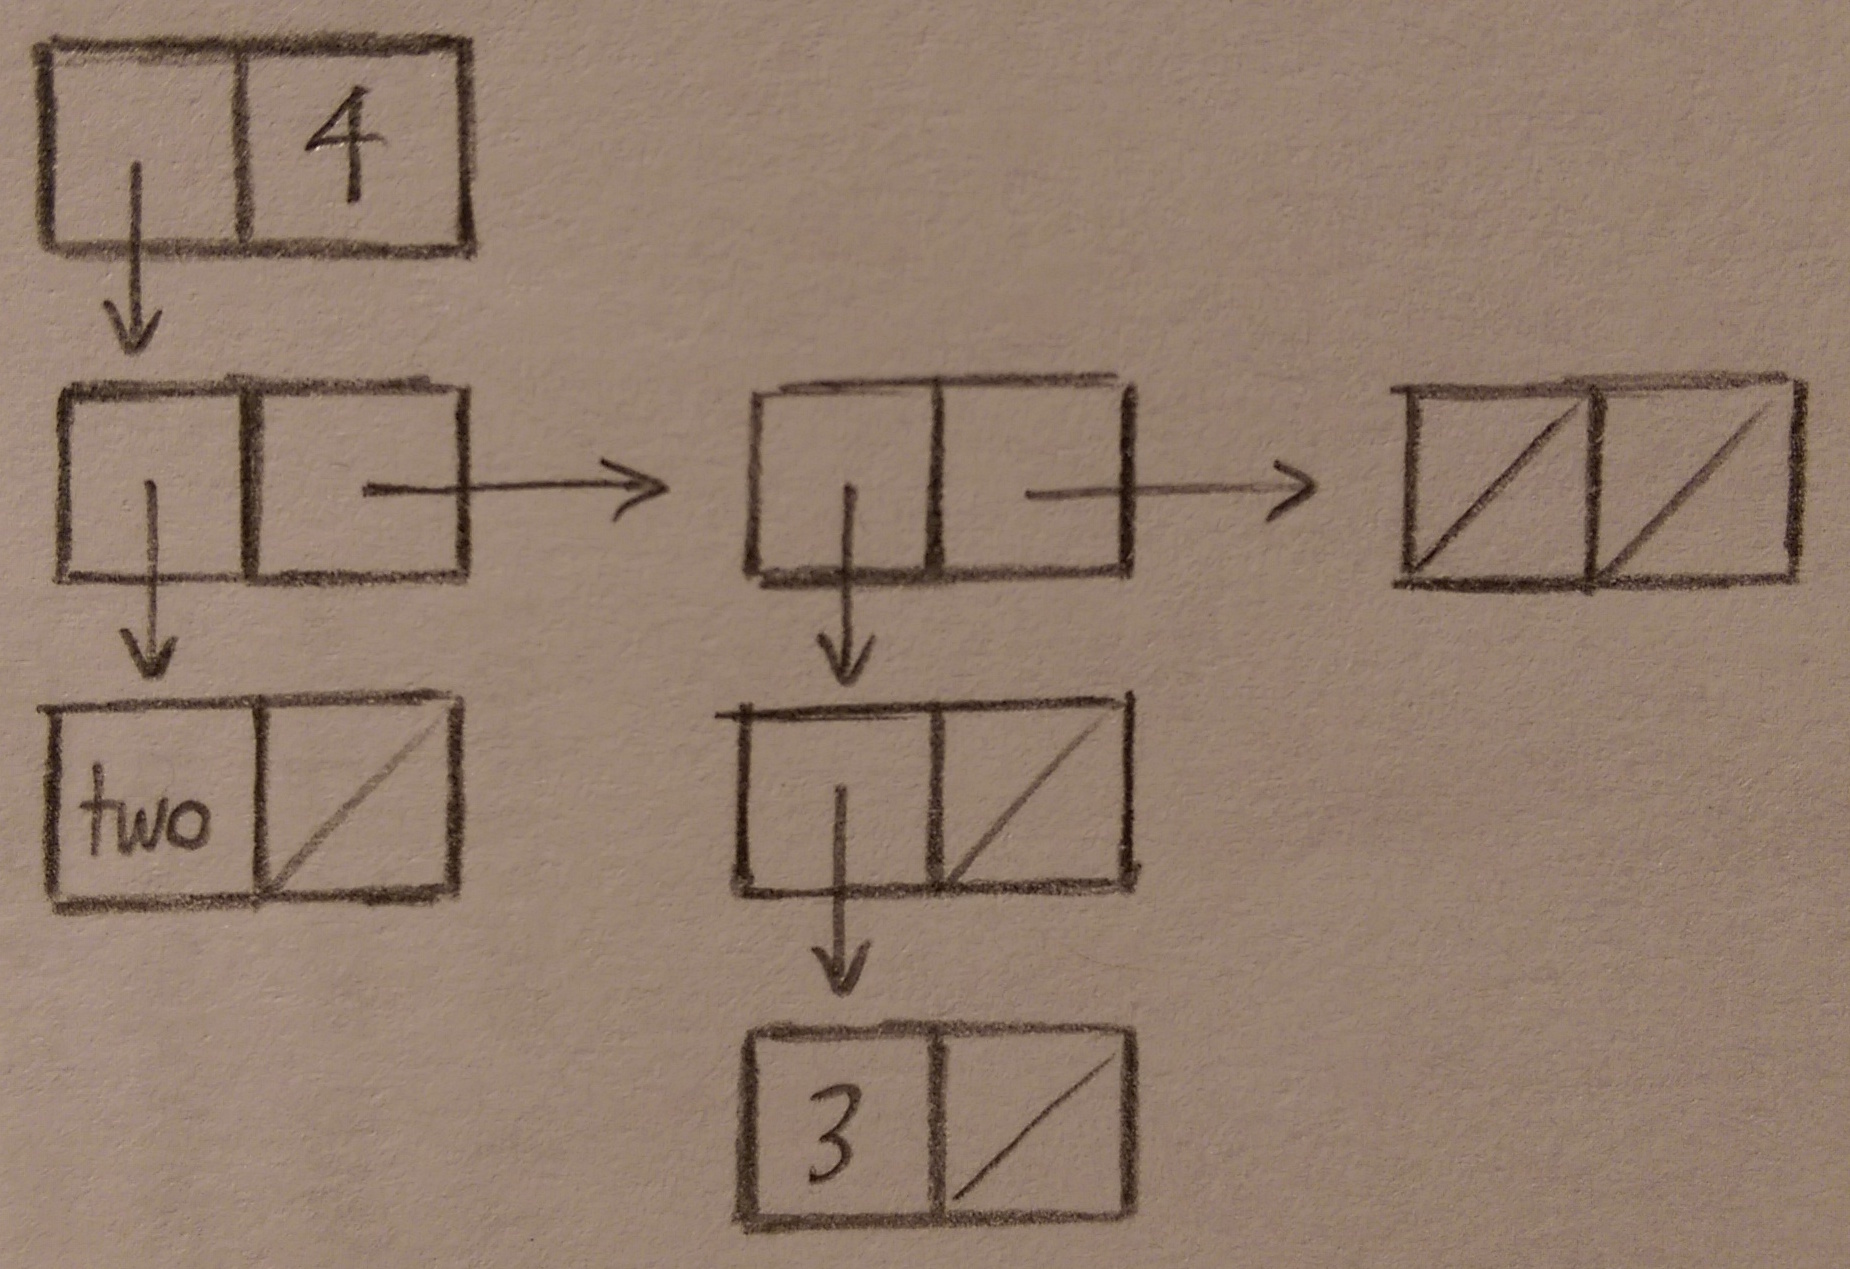 4
two
3